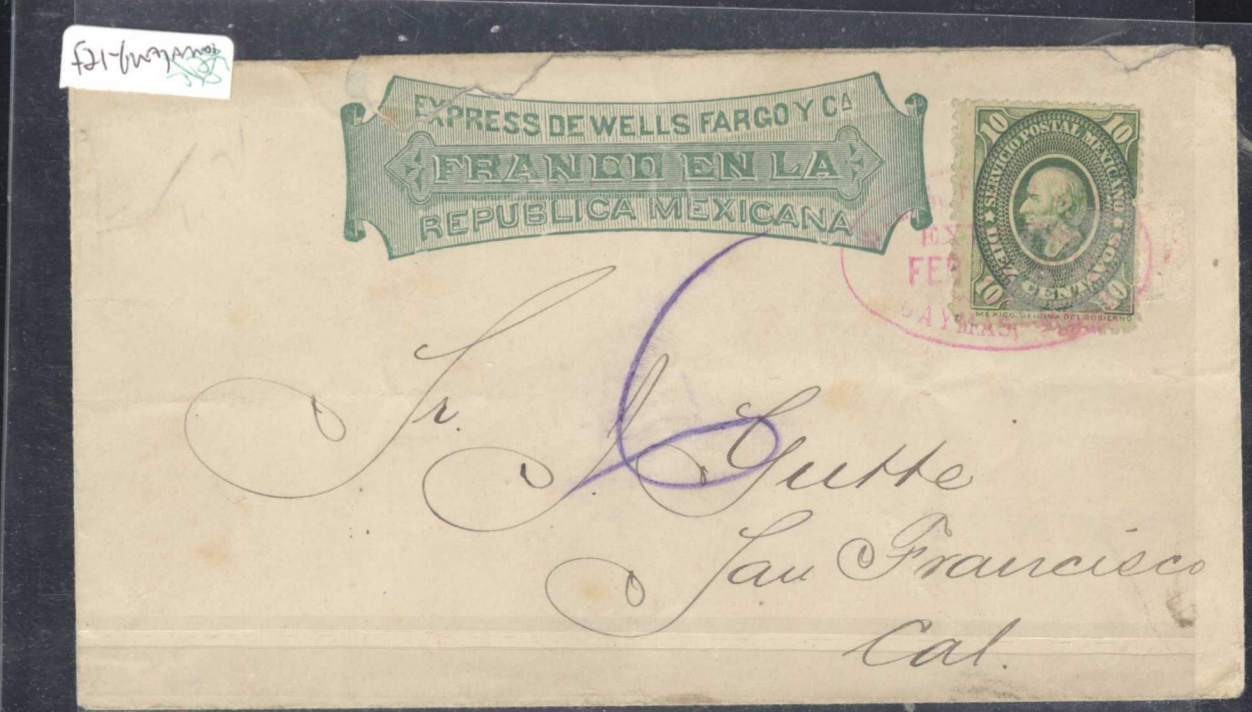 EXPRESS DE WELLS FARGO Y Cª
FRANCO EN LA
REPUBLICA MEXICANA
SERVICIO POSTAL MEXICANO
10 10
DIEZ CENTAVOS
10 10
MEXICO OFICINA DEL GOBIERNO
EX
FEB
GAYMAS
6
Sr. J. Gutte
San Francisco
Cal.